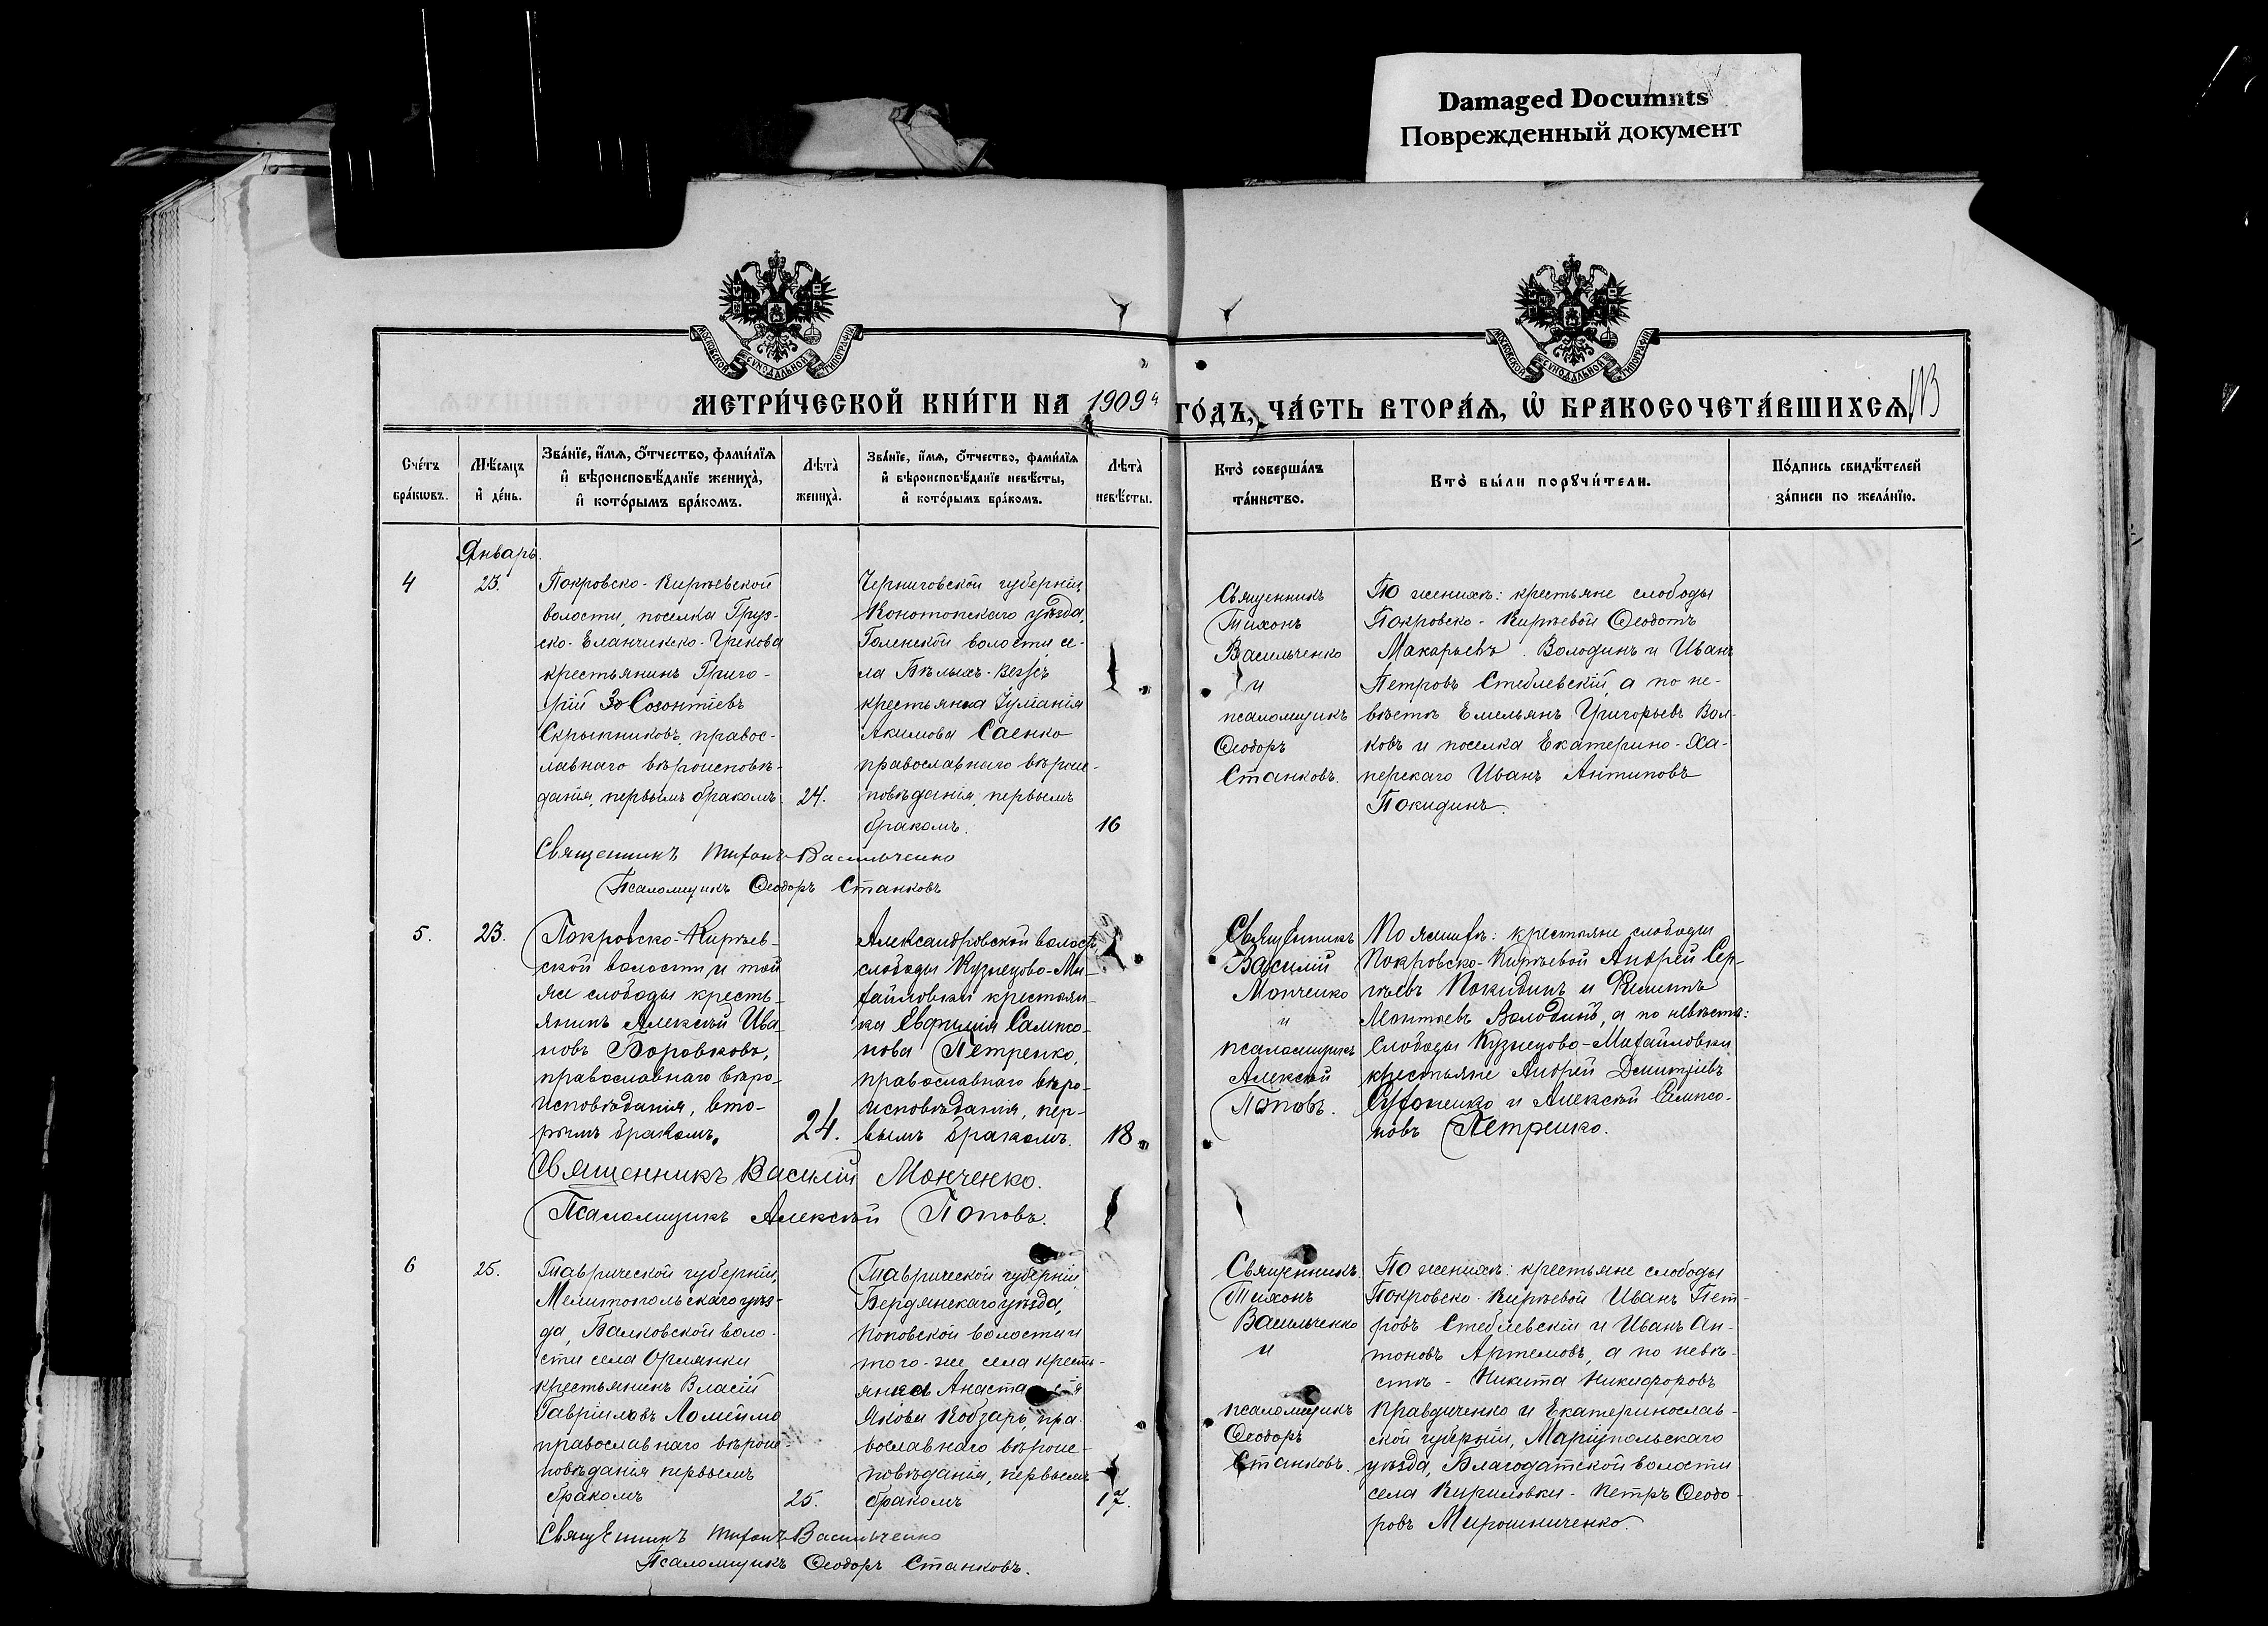 Damaged Documnts
Поврежденный документ
МОСКОВСКОЙ СѴНОДАЛЬНОЙ ТИПОГРАФІИ
МОСКОВСКОЙ СѴНОДАЛЬНОЙ ТИПОГРАФІИ
МЕТРИ́ЧЕСКОЙ КНИ́ГИ НА 1909й
ГО́ДЪ, ЧА́СТЬ ВТОРА́Ѧ, Ѡ҆ БРАКОСОЧЕТА́ВШИХСѦ
Сче́тъ бра́кѡвъ.
Мѣ́сяцъ и҆ де́нь.
Зва́нїе, и҆́мѧ, ѻ҆́тчество, фами́лїѧ
и҆ вѣроисповѣ́данїе жениха̀,
и҆ кото́рымъ бра́комъ.
Лѣта̀ жениха̀.
Зва́нїе, и҆́мѧ, ѻ҆́тчество, фами́лїѧ
и҆ вѣроисповѣ́данїе невѣ́сты,
и҆ кото́рымъ бра́комъ.
Лѣта̀ невѣ́сты.
Кто̀ соверша́лъ та́инство.
Кто̀ бы́ли порꙋчи́тели.
По́дпись свидѣ́телей
за́писи по жела́нїю.
Январь.
4
23.
Покровско-Кирѣевской
волости, поселка Груз-
ско-Еланчикско-Грекова
крестьянинъ Григо-
рій Созонтіевъ
Скрыпниковъ, правос-
лавнаго вѣроисповѣ-
данія, первымъ бракомъ.
24.
Черниговской губерніи,
Конотопскаго уѣзда,
Голенской волости, се-
ла Бѣлыхъ-Вежъ
крестьянка Іуліанія
Акимова Саенко
православнаго вѣроис-
повѣданія, первымъ
бракомъ.
16
Священникъ
Тихонъ
Васильченко
и
псаломщикъ
Ѳеодоръ
Станковъ.
По женихѣ: крестьяне слободы
Покровско-Кирѣевой Ѳеодотъ
Макарьевъ Володинъ и Иванъ
Петровъ Стеблевскій, а по не-
вѣстѣ Емельянъ Григорьевъ Вол-
ковъ и поселка Екатерино-Ха-
перскаго Иванъ Антиповъ
Покидинъ.
Священникъ Тихонъ Васильченко
Псаломщикъ Ѳеодоръ Станковъ
5.
23.
Покровско-Кирѣев-
ской волости и той
же слободы кресть-
янинъ Алексѣй Ива-
новъ Боровковъ,
православнаго вѣро-
исповѣданія, вто-
рымъ бракомъ.
24.
Александровской волости,
слободы Кузнецово-Ми-
хайловки крестьян-
ка Евфимія Сампсо-
нова Петренко,
православнаго вѣро-
исповѣданія, пер-
вымъ бракомъ.
18.
Священникъ
Василій
Мончешко
и
псаломщикъ
Алексѣй
Поповъ.
По женихѣ: крестьяне слободы
Покровско-Кирѣевой Андрей Сер-
гѣевъ Покидинъ и Филиппъ
Леонтьевъ Володинъ, а по невѣстѣ:
слободы Кузнецово-Михайловки
крестьяне Андрей Дмитріевъ
Сухоненко и Алексѣй Сампсо-
новъ Петренко.
Священникъ Василій Монченко.
Псаломщикъ Алексѣй Поповъ.
6
25.
Таврической губерніи,
Мелитопольскаго уѣз-
да, Балковской воло-
сти села Орлянки
крестьянинъ Власій
Гавріиловъ Ломейко
православнаго вѣроис-
повѣданія первымъ
бракомъ
25.
Таврической губерніи
Бердянскаго уѣзда,
Поповской волости и
того-же села кресть-
янка Анастасія
Якова Кобзарь, пра-
вославнаго вѣроис-
повѣданія, первымъ
бракомъ
17.
Священникъ
Тихонъ
Васильченко
и
псаломщикъ
Ѳеодоръ
Станковъ.
По женихѣ: крестьяне слободы
Покровско-Кирѣевой Иванъ Пет-
ровъ Стеблевскій и Иванъ Ан-
тоновъ Артемовъ, а по невѣ-
стѣ - Никита Никифоровъ
Правдиченко и Екатеринослав-
ской губерніи, Маріупольскаго
уѣзда, Благодатской волости
села Кириловки - Петръ Ѳеодо-
ровъ Мирошниченко.
Священникъ Тихонъ Васильченко
Псаломщикъ Ѳеодоръ Станковъ.